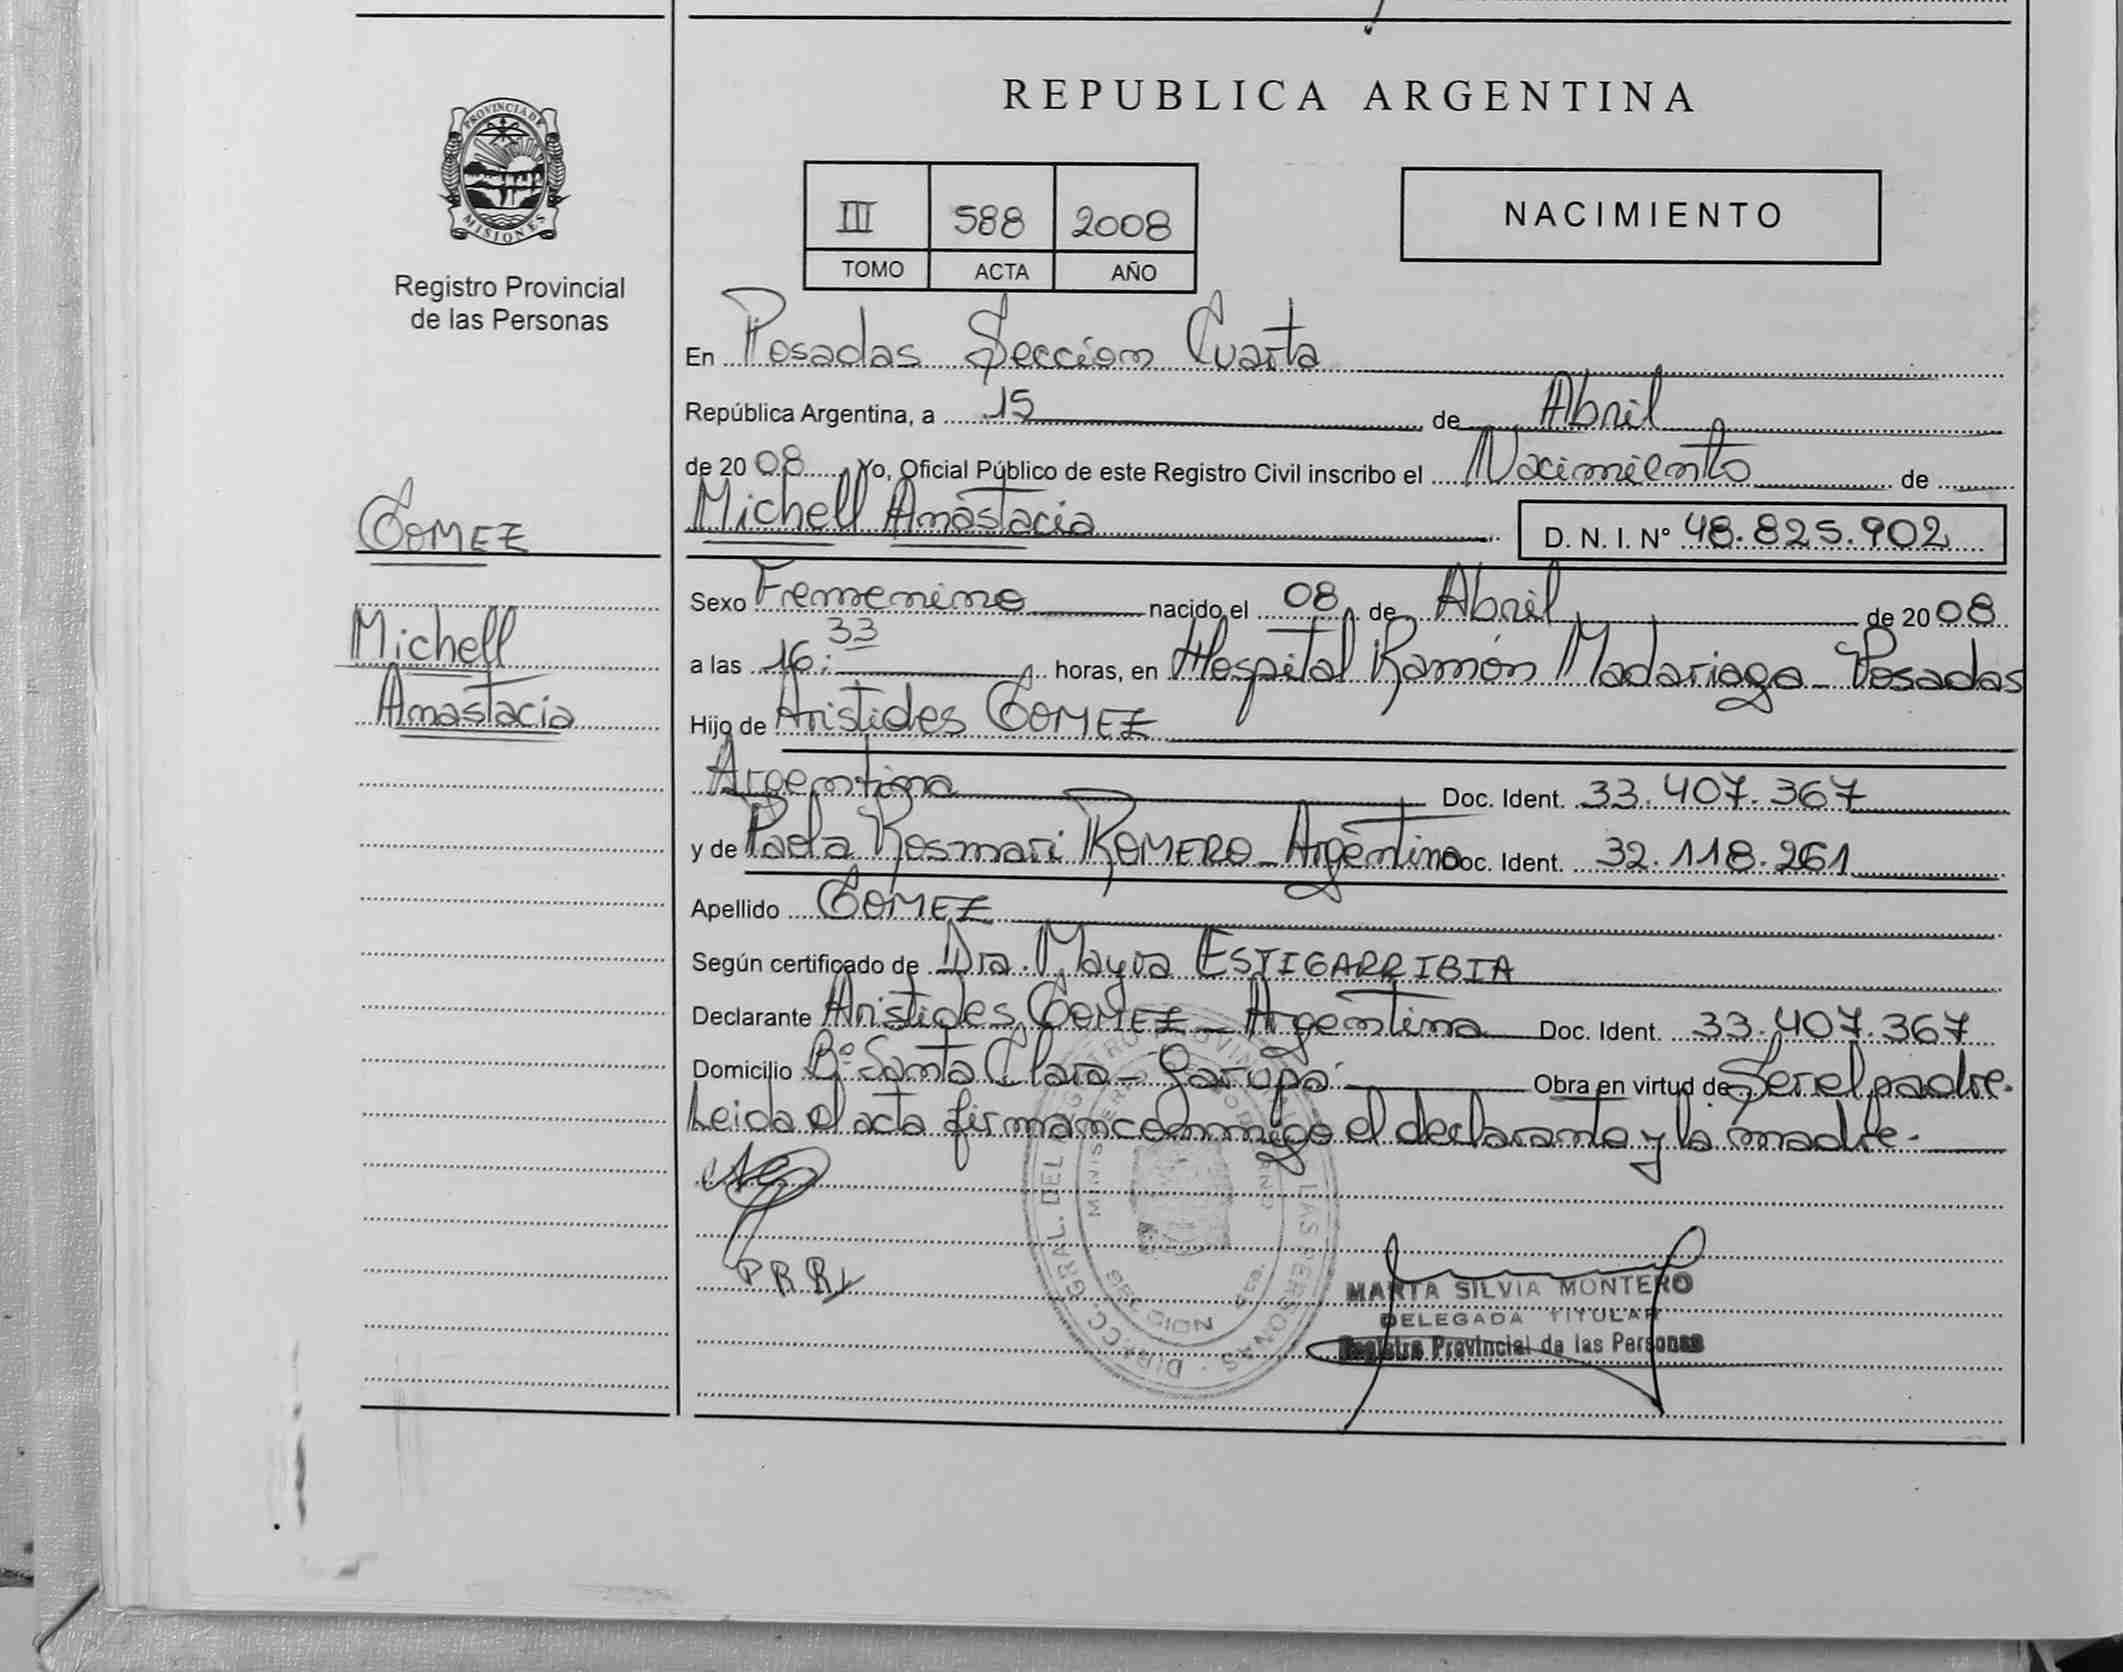 REPUBLICA ARGENTINA
PROVINCIA DE
MISIONES
Registro Provincial
de las Personas
III 588 2008
TOMO ACTA AÑO
NACIMIENTO
En Posadas Sección Cuarta
República Argentina, a 15 de Abril
de 2008 Yo, Oficial Público de este Registro Civil inscribo el Nacimiento de
GOMEZ
Michell Anastacia
D. N. I. Nº 48.825.902
Sexo Femenino nacido el 08 de Abril de 2008
Michell
Anastacia
a las 16:33 horas, en Hospital Ramón Madariaga - Posadas
Hijo de Aristides GOMEZ
Argentina Doc. Ident. 33.407.367
y de Paola Rosmari ROMERO - Argentina Doc. Ident. 32.118.261
Apellido GOMEZ
Según certificado de Dra. Mayra ESTIGARRIBIA
Declarante Aristides GOMEZ - Argentina Doc. Ident. 33.407.367
Domicilio Bº Santa Clara - Garupá Obra en virtud de Ser el padre.
Leida el acta firman conmigo el declarante y la madre.
PRRy
MARTA SILVIA MONTERO
DELEGADA TITULAR
Registro Provincial de las Personas